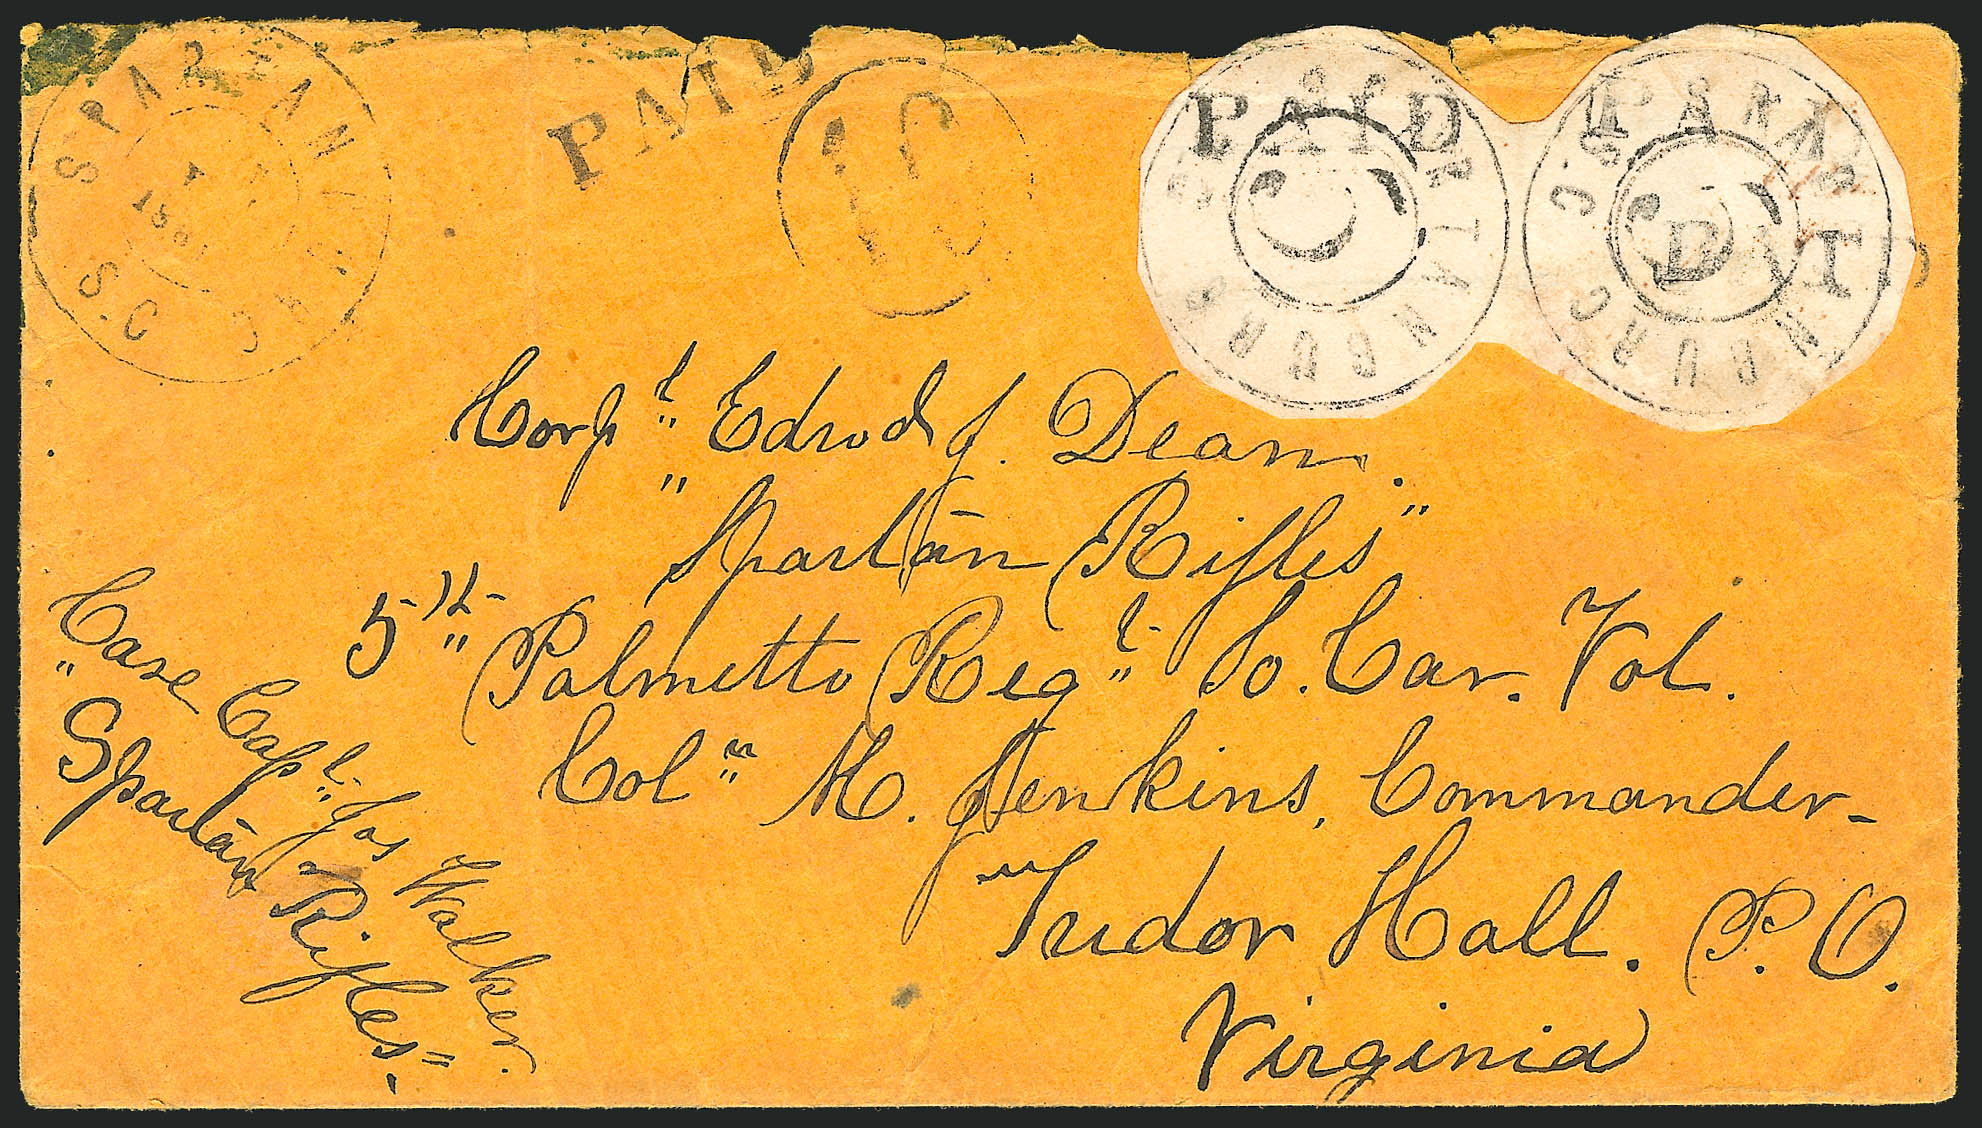 SPARTANBURG S.C.
PAID
10
SPARTANBURG S.C.
5
PAID
SPARTANBURG S.C.
5
PAID
Corpl Edwd J. Dean.
"Spartan Rifles"
5th Palmetto Regt So. Car. Vol.
Coln M. Jenkins, Commander-
Tudor Hall. P. O.
Virginia
Care Capt Jos Walker.
"Spartan Rifles"